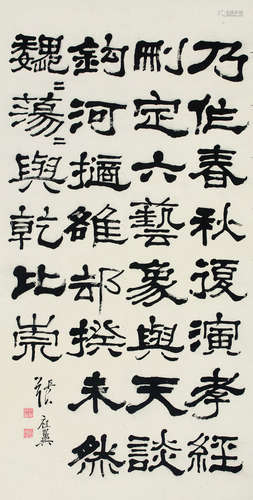 乃作春秋復演孝經
刪定六藝象與天談
鈎河擿雒却揆未然
巍〻蕩〻與乾比崇